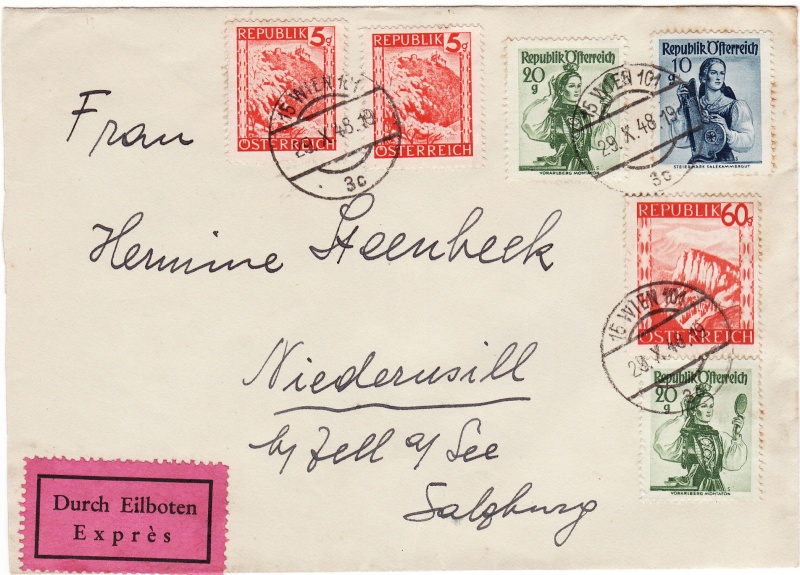 REPUBLIK 5g
ÖSTERREICH
REPUBLIK 5g
ÖSTERREICH
Republik Österreich
20
g
VORARLBERG MONTAFON
Republik Österreich
10
g
STEIERMARK SALZKAMMERGUT
15 WIEN 101
29.X.48.19
3c
15 WIEN 101
29.X.48.19
3c
Frau
Hermine Steenbeck
REPUBLIK 60g
ÖSTERREICH
15 WIEN 101
29.X.48.19
Niedernsill
b/Zell a/See
Salzburg
Republik Österreich
20
g
VORARLBERG MONTAFON
Durch Eilboten
Exprès